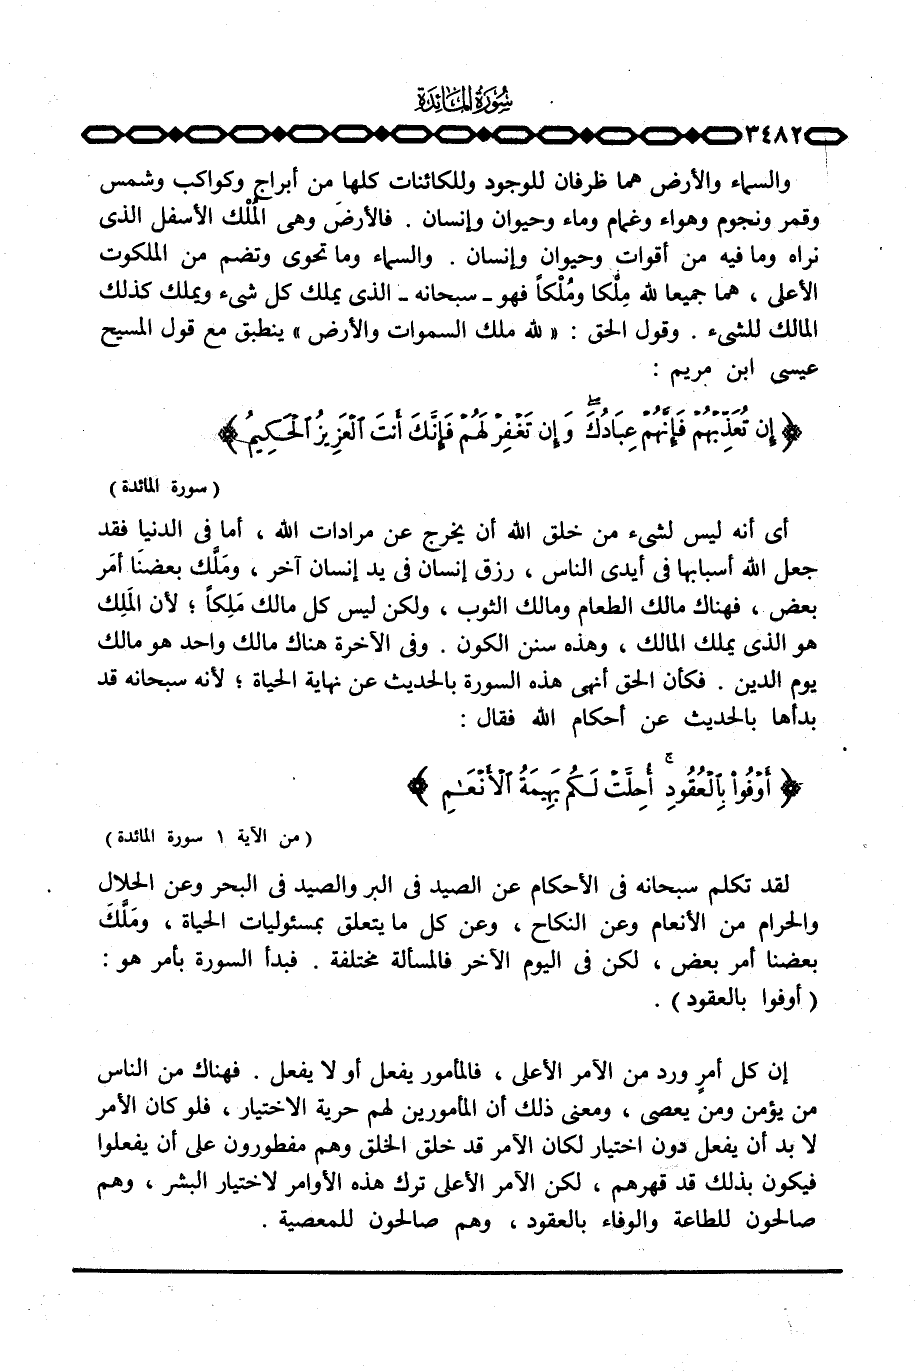 سورة المائدة
٣٤٨٢
والسماء والأرض هما ظرفان للوجود وللكائنات كلها من أبراج وكواكب وشمس
وقمر ونجوم وهواء وغمام وماء وحيوان وإنسان . فالأرضَ وهى المُلْك الأسفل الذى
نراه وما فيه من أقوات وحيوان وإنسان . والسماء وما تحوى وتضم من الملكوت
الأعلى ، هما جميعا لله مِلْكا ومُلْكاً فهو ـ سبحانه ـ الذى يملك كل شىء ويملك كذلك
المالك للشىء . وقول الحق : « لله ملك السموات والأرض » ينطبق مع قول المسيح
عيسى ابن مريم :
﴿ إِن تُعَذِّبْهُمْ فَإِنَّهُمْ عِبَادُكَ ۖ وَإِن تَغْفِرْ لَهُمْ فَإِنَّكَ أَنتَ ٱلْعَزِيزُ ٱلْحَكِيمُ ﴾
( سورة المائدة )
أى أنه ليس لشىء من خلق الله أن يخرج عن مرادات الله ، أما فى الدنيا فقد
جعل الله أسبابها فى أيدى الناس ، رزق إنسان فى يد إنسان آخر ، ومَلَّك بعضنَا أمَر
بعض ، فهناك مالك الطعام ومالك الثوب ، ولكن ليس كل مالك مَلِكاً ؛ لأن المَلِك
هو الذى يملك المالك ، وهذه سنن الكون . وفى الآخرة هناك مالك واحد هو مالك
يوم الدين . فكأن الحق أنهى هذه السورة بالحديث عن نهاية الحياة ؛ لأنه سبحانه قد
بدأها بالحديث عن أحكام الله فقال :
﴿ أَوْفُواْ بِٱلْعُقُودِ ۚ أُحِلَّتْ لَكُم بَهِيمَةُ ٱلْأَنْعَـٰمِ ﴾
( من الآية ١ سورة المائدة )
لقد تكلم سبحانه فى الأحكام عن الصيد فى البر والصيد فى البحر وعن الحلال
والحرام من الأنعام وعن النكاح ، وعن كل ما يتعلق بمسئوليات الحياة ، ومَلَّكَ
بعضنا أمر بعض ، لكن فى اليوم الآخر فالمسألة مختلفة . فبدأ السورة بأمر هو :
( أوفوا بالعقود ) .
إن كل أمرٍ ورد من الآمر الأعلى ، فالمأمور يفعل أو لا يفعل . فهناك من الناس
من يؤمن ومن يعصى ، ومعنى ذلك أن المأمورين لهم حرية الاختيار ، فلو كان الأمر
لا بد أن يفعل دون اختيار لكان الآمر قد خلق الخلق وهم مفطورون على أن يفعلوا
فيكون بذلك قد قهرهم ، لكن الآمر الأعلى ترك هذه الأوامر لاختيار البشر ، وهم
صالحون للطاعة والوفاء بالعقود ، وهم صالحون للمعصية .